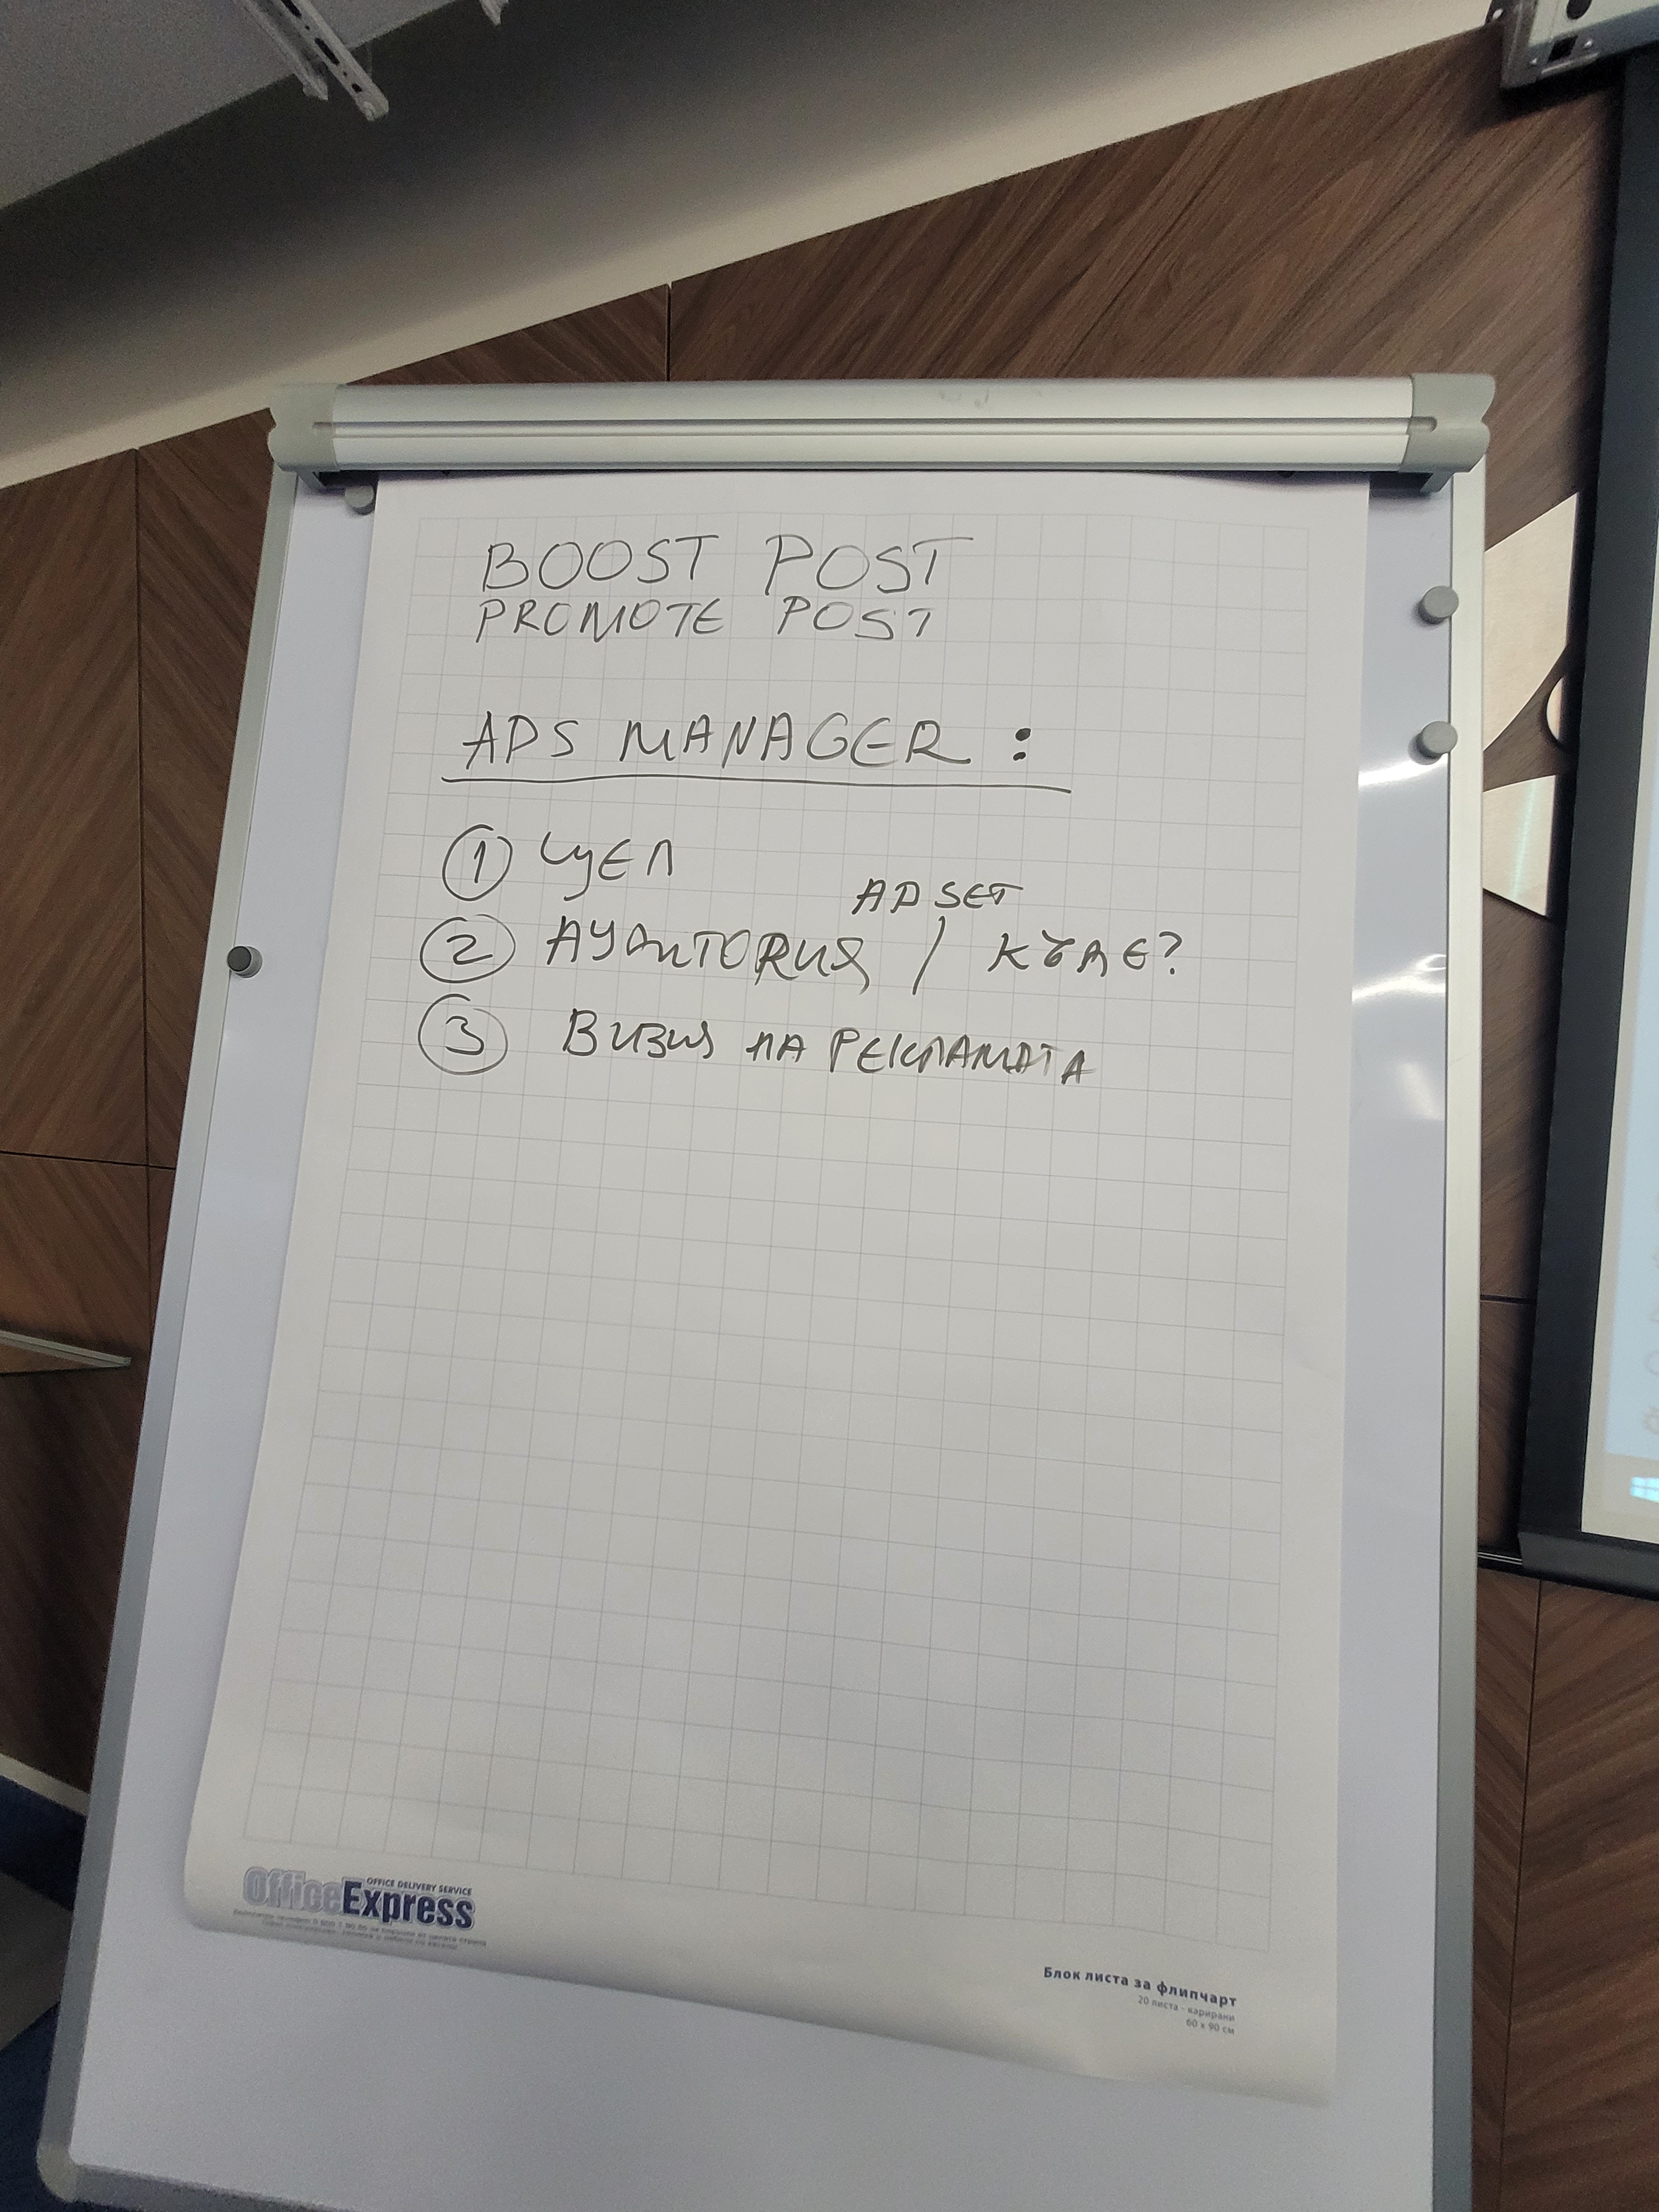 BOOST POST
PROMOTE POST
ADS MANAGER :
1 ЦЕЛ
AD SET
2 АУДИТОRИЯ / КЪДЕ?
3 ВИЗИЯ НА РЕКЛАМАТА
OFFICE DELIVERY SERVICE
OfficeExpress
Блок листа за флипчарт
20 листа - карирани
60 x 90 см